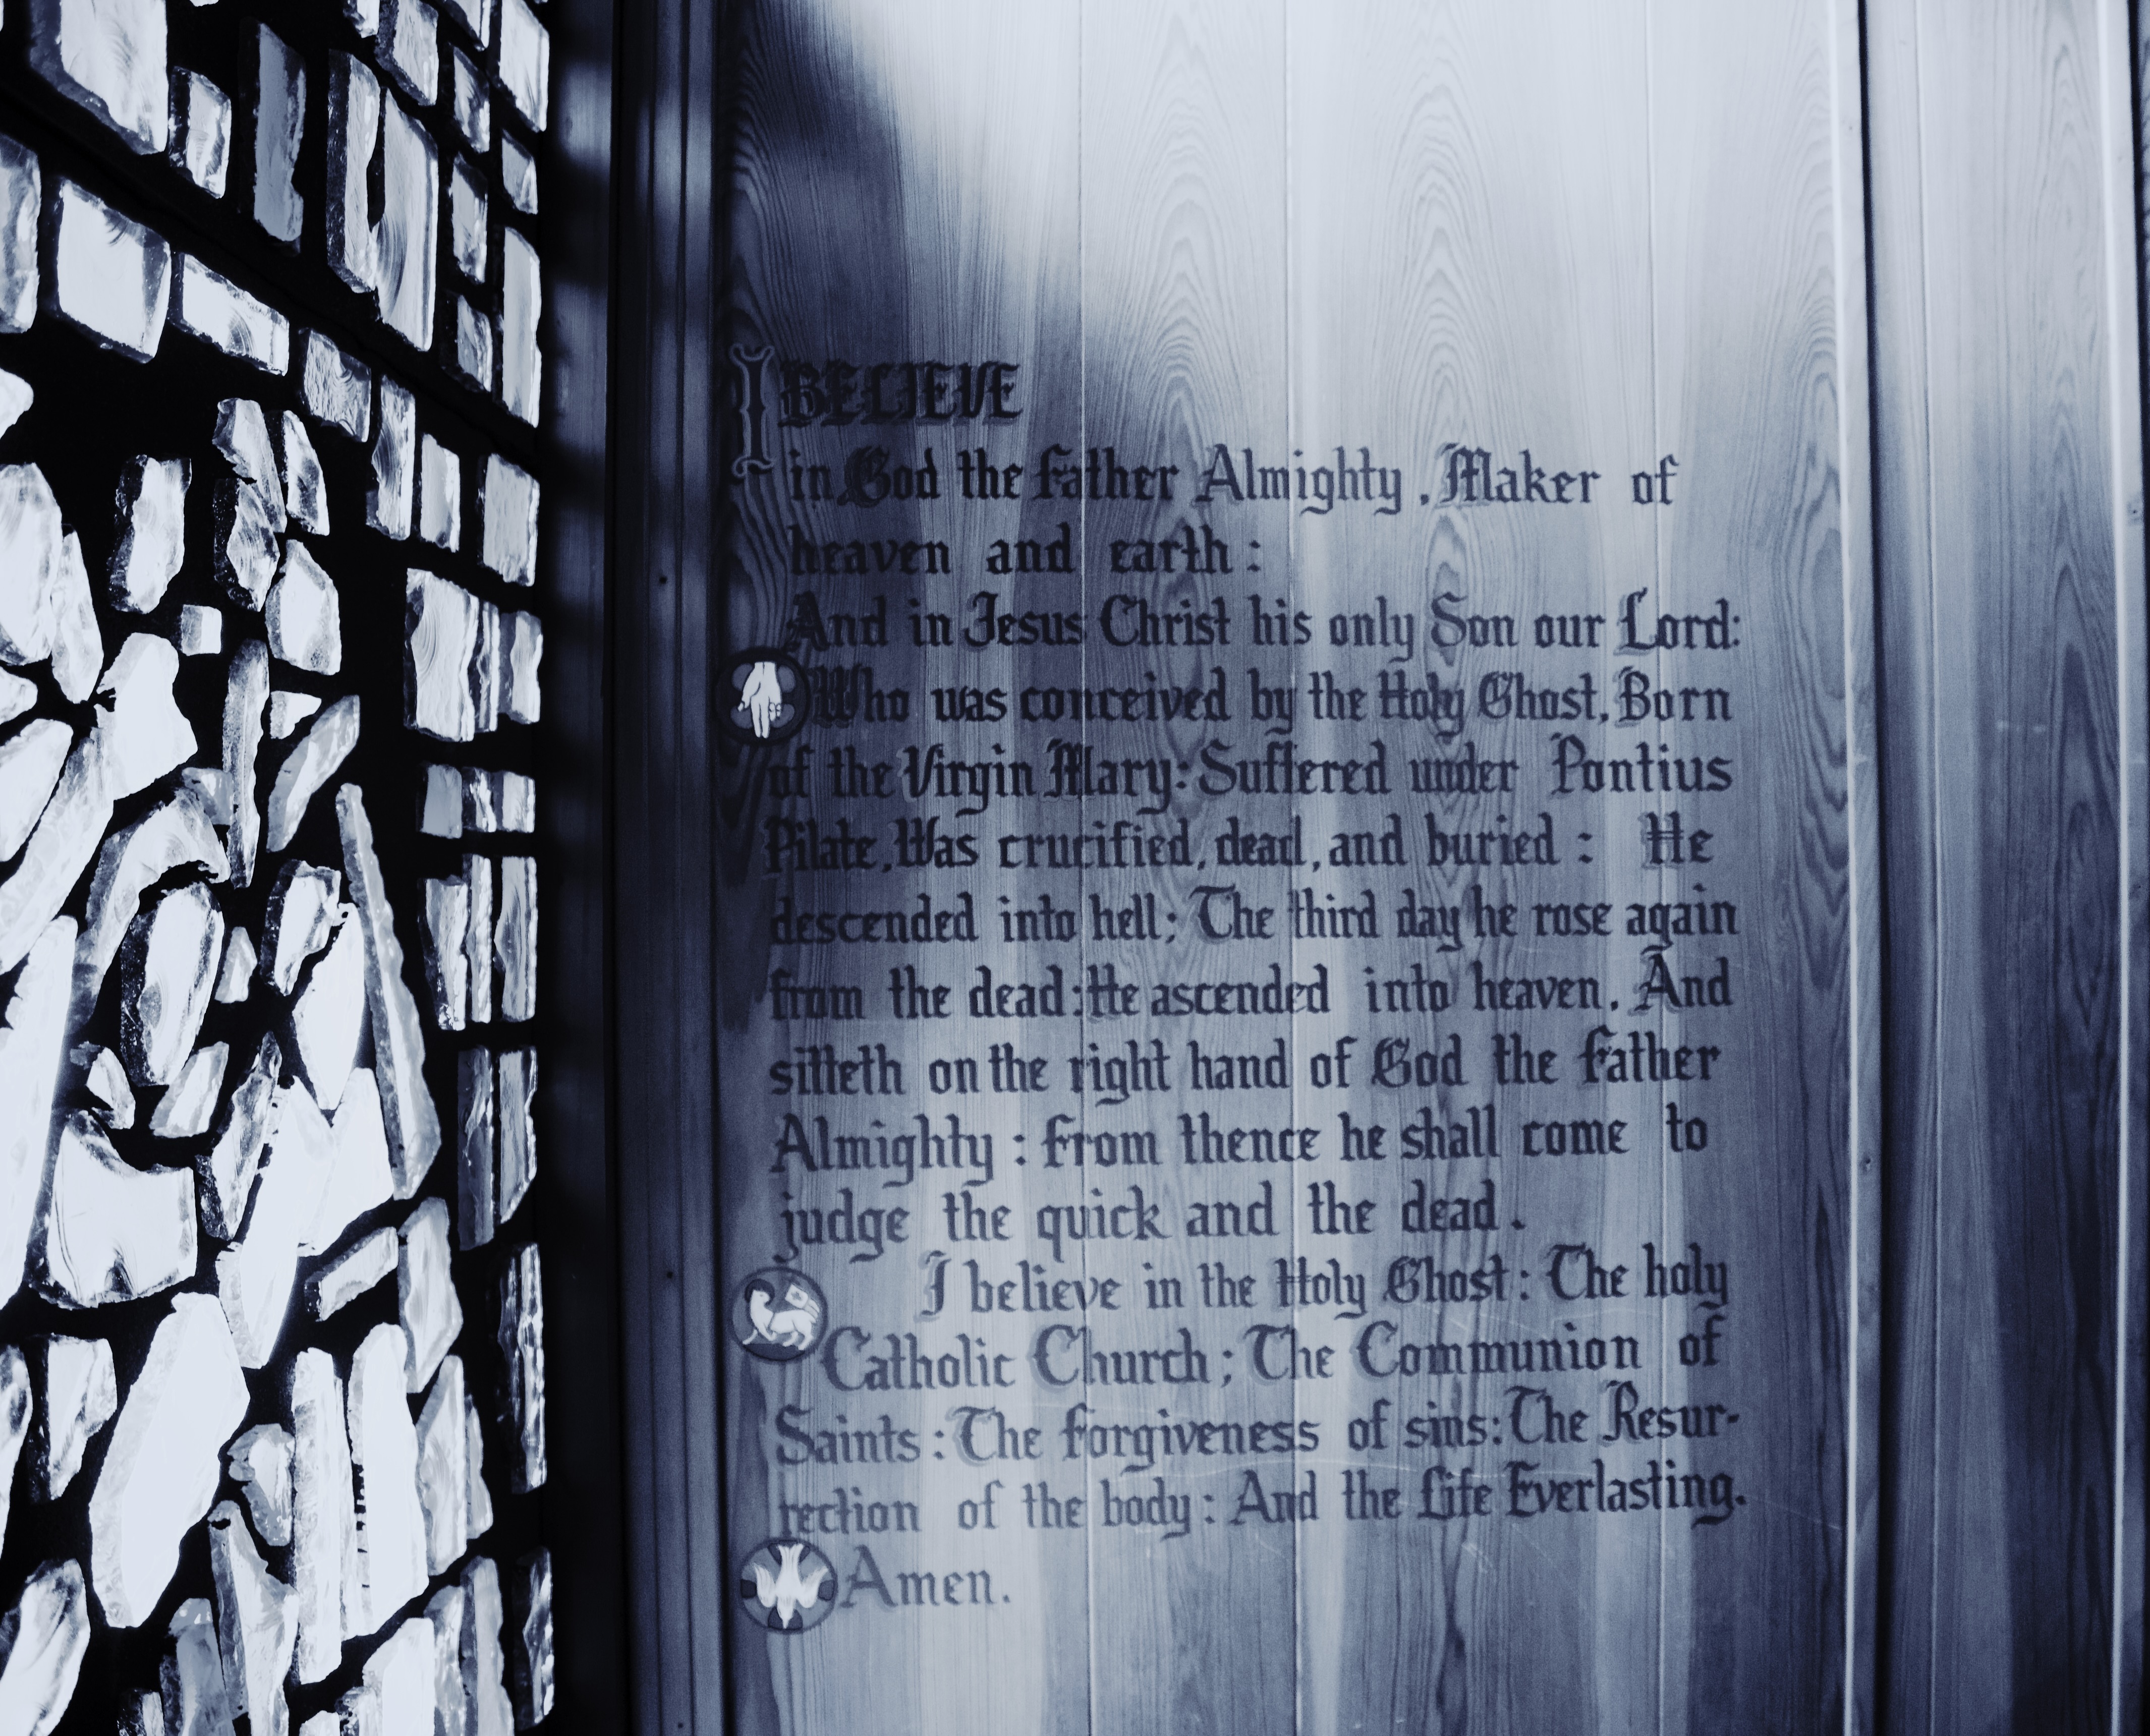 I BELIEVE
in God the Father Almighty, Maker of
heaven and earth:
And in Jesus Christ his only Son our Lord:
Who was conceived by the Holy Ghost, Born
of the Virgin Mary: Suffered under Pontius
Pilate, Was crucified, dead, and buried: He
descended into hell; The third day he rose again
from the dead: He ascended into heaven, And
sitteth on the right hand of God the Father
Almighty: From thence he shall come to
judge the quick and the dead.
I believe in the Holy Ghost: The holy
Catholic Church; The Communion of
Saints: The Forgiveness of sins: The Resur-
rection of the body: And the Life Everlasting.
Amen.